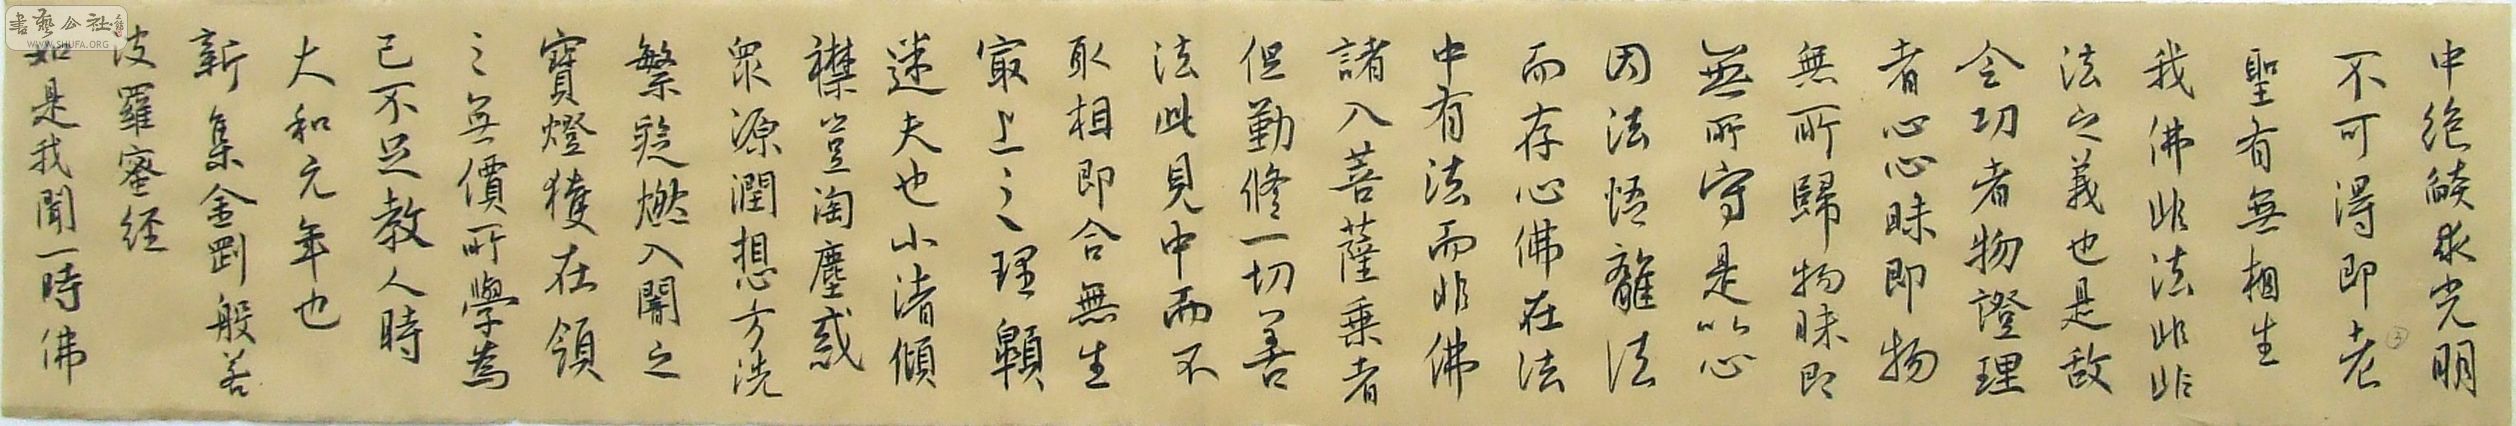 中絶皦求光明
不可得即老
聖有無相生
我佛非法非非
法之義也是故
會切者物證理
者心心昧即物
無所歸物昧即
無所守是以心
因法悟離法
而存心佛在法
中有法而非佛
諸入菩薩乗者
但勤修一切善
法此見中而不
取相即合無生
冣上之理顛
迷夫也小渚傾
襟豈淘塵惑
衆源潤想方洗
繁疑燃入闇之
寶燈獲在領
之無價所學為
己不足教人時
大和元年也
新集金剛般若
波羅蜜経
如是我聞一時佛
書藝公社
WWW.SHUFA.ORG